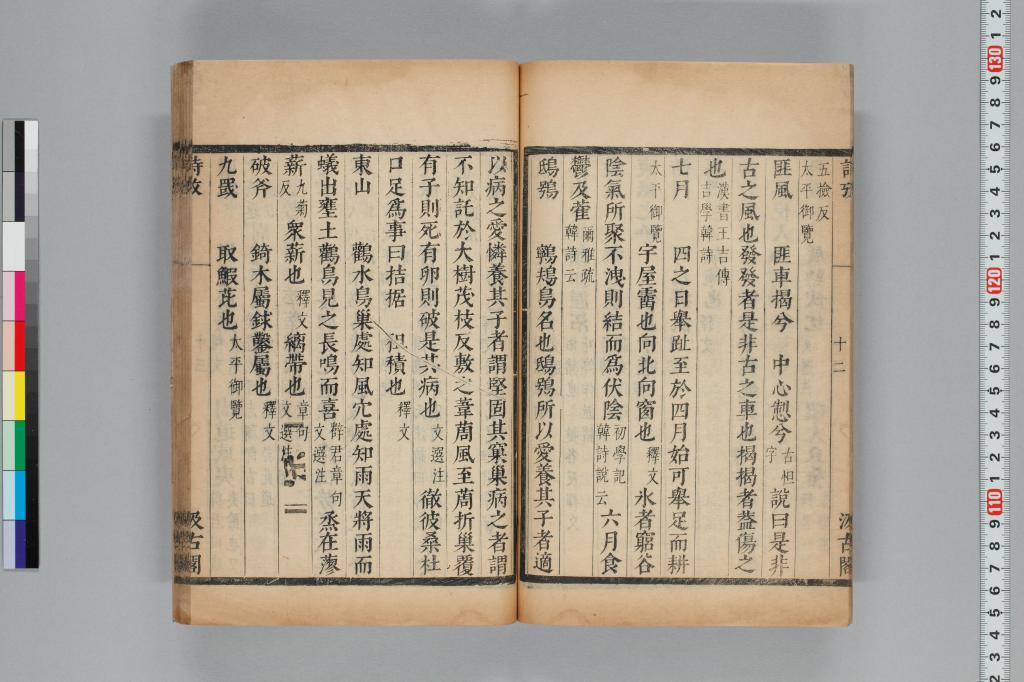 五檢反
太平御覽
匪風　匪車揭兮　中心慙兮古怛字　說曰是非
古之風也發發者是非古之車也揭揭者蓋傷之
也漢書王吉傳吉學韓詩
七月　四之日舉趾至於四月始可舉足而耕
太平御覽　宇屋霤也向北向窗也釋文　氷者窮谷
陰氣所聚不洩則結而爲伏陰初學記韓詩說云　六月食
鬱及藿爾雅疏韓詩云
鴟鴞　鸋鴂鳥名也鴟鴞所以愛養其子者適
以病之愛憐養其子者謂堅固其窠巢病之者謂
不知託於大樹茂枝反敷之葦䔑風至䔑折巢覆
有子則死有卵則破是其病也文選注　徹彼桑杜
口足爲事曰拮据　租積也釋文
東山　鸛水鳥巢處知風穴處知雨天將雨而
蟻出壅土鸛鳥見之長鳴而喜薛君章句文選注　烝在蓼
薪九菊反　衆薪也釋文　縭帶也章句文選注
破斧　錡木屬銶鑿屬也釋文
九罭　取鰕芘也太平御覽
詩攷
十二
汲古閣
詩攷
汲古閣
130
120
110